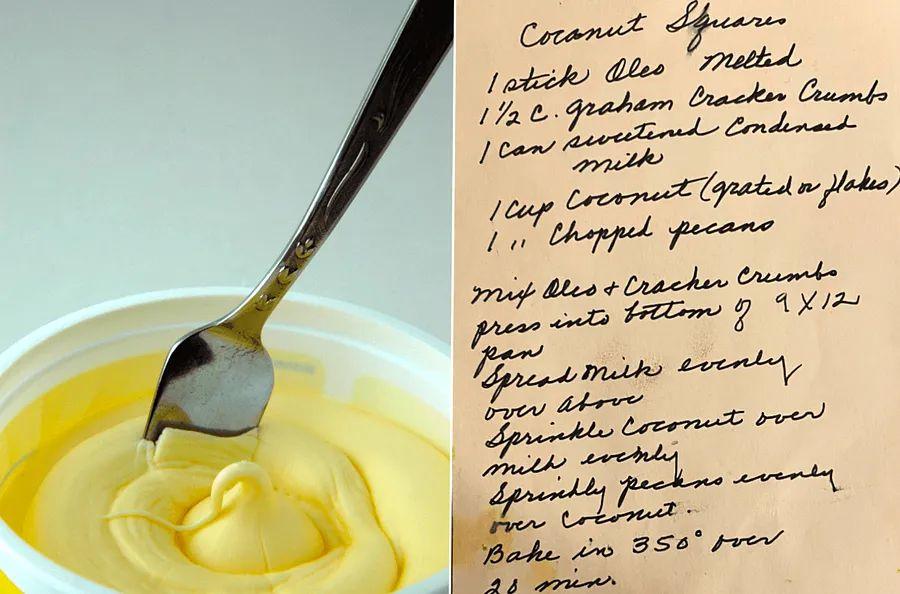 Coconut Squares
1 stick Oleo Melted
1 1/2 C. graham Cracker Crumbs
1 Can sweetened Condensed
milk
1 Cup Coconut (grated or flakes)
1 " Chopped pecans
Mix Oleo + Cracker Crumbs
press into bottom of 9 X 12
pan
Spread Milk evenly
over above
Sprinkle Coconut over
milk evenly
Sprinkly pecans evenly
over Coconut.
Bake in 350° over
20 min.